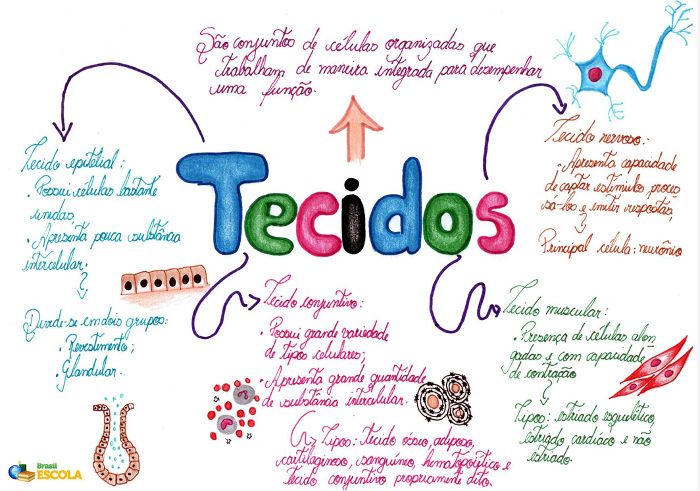 São conjuntos de células organizadas que
trabalham de maneira integrada para desempenhar
uma função.
Tecidos
Tecido epitelial:
• Possui células bastante
unidas;
• Apresenta pouca substância
intercelular.
Divide-se em dois grupos:
• Revestimento;
• Glandular.
Tecido conjuntivo:
• Possui grande variedade
de tipos celulares;
• Apresenta grande quantidade
de substância intercelular.
Tipos: Tecido ósseo, adiposo,
cartilaginoso, sanguíneo, hematopoiético e
tecido conjuntivo propriamente dito.
Tecido nervoso:
• Apresenta capacidade
de captar estímulos, proces
sá-los e emitir respostas;
Principal célula: neurônio
Tecido muscular:
• Presença de células alon
gadas e com capacidade
de contração
Tipos: estriado esquelético,
estriado cardíaco e não
estriado.
Brasil
ESCOLA